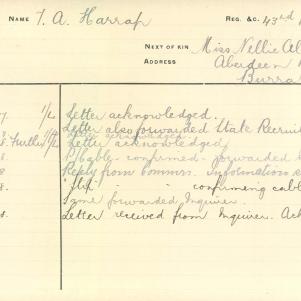 NAME T. A. Harrap REG. &C. 43rd
NEXT OF KIN Miss Nellie Al
ADDRESS Aberdeen
Burra
7. 1/2 Letter acknowledged.
Letter also forwarded State Recruit
Letter acknowledged
8 Cable - confirmed - forwarded
8 Reply from Commrs. Information
8. confirming cabl
Same forwarded Inquirer.
8. Letter received from Inquirer. Ack